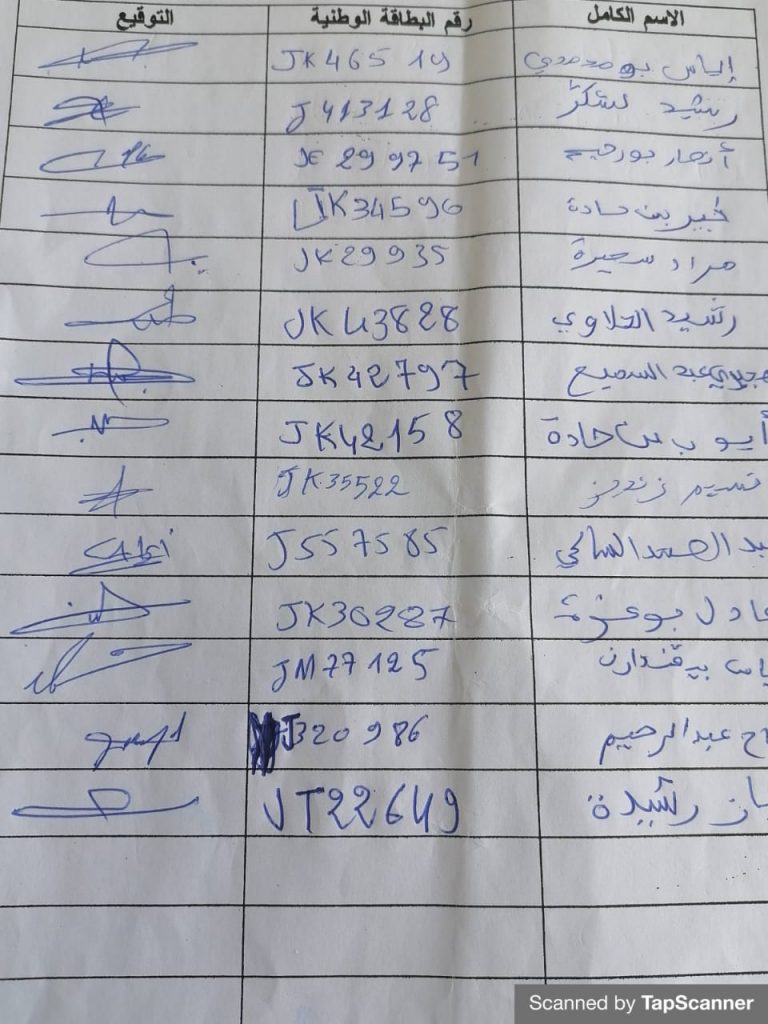 الاسم الكامل رقم البطاقة الوطنية التوقيع
إلياس بومحمدي JK465 19
رشيد لشكر J413128
أنصار بورحيم JE 299751
خبير بن حادة JK34596
مراد سحيرة JK29935
رشيد الحلاوي JK43828
عبد السميع JK42797
أيوب بن حادة JK42158
نسيم JK35522
بد الصمد السالمي J557585
عادل بوعزة JK30287
JM77125
اح عبد الرحيم J320986
از رشيدة JT22649
Scanned by TapScanner